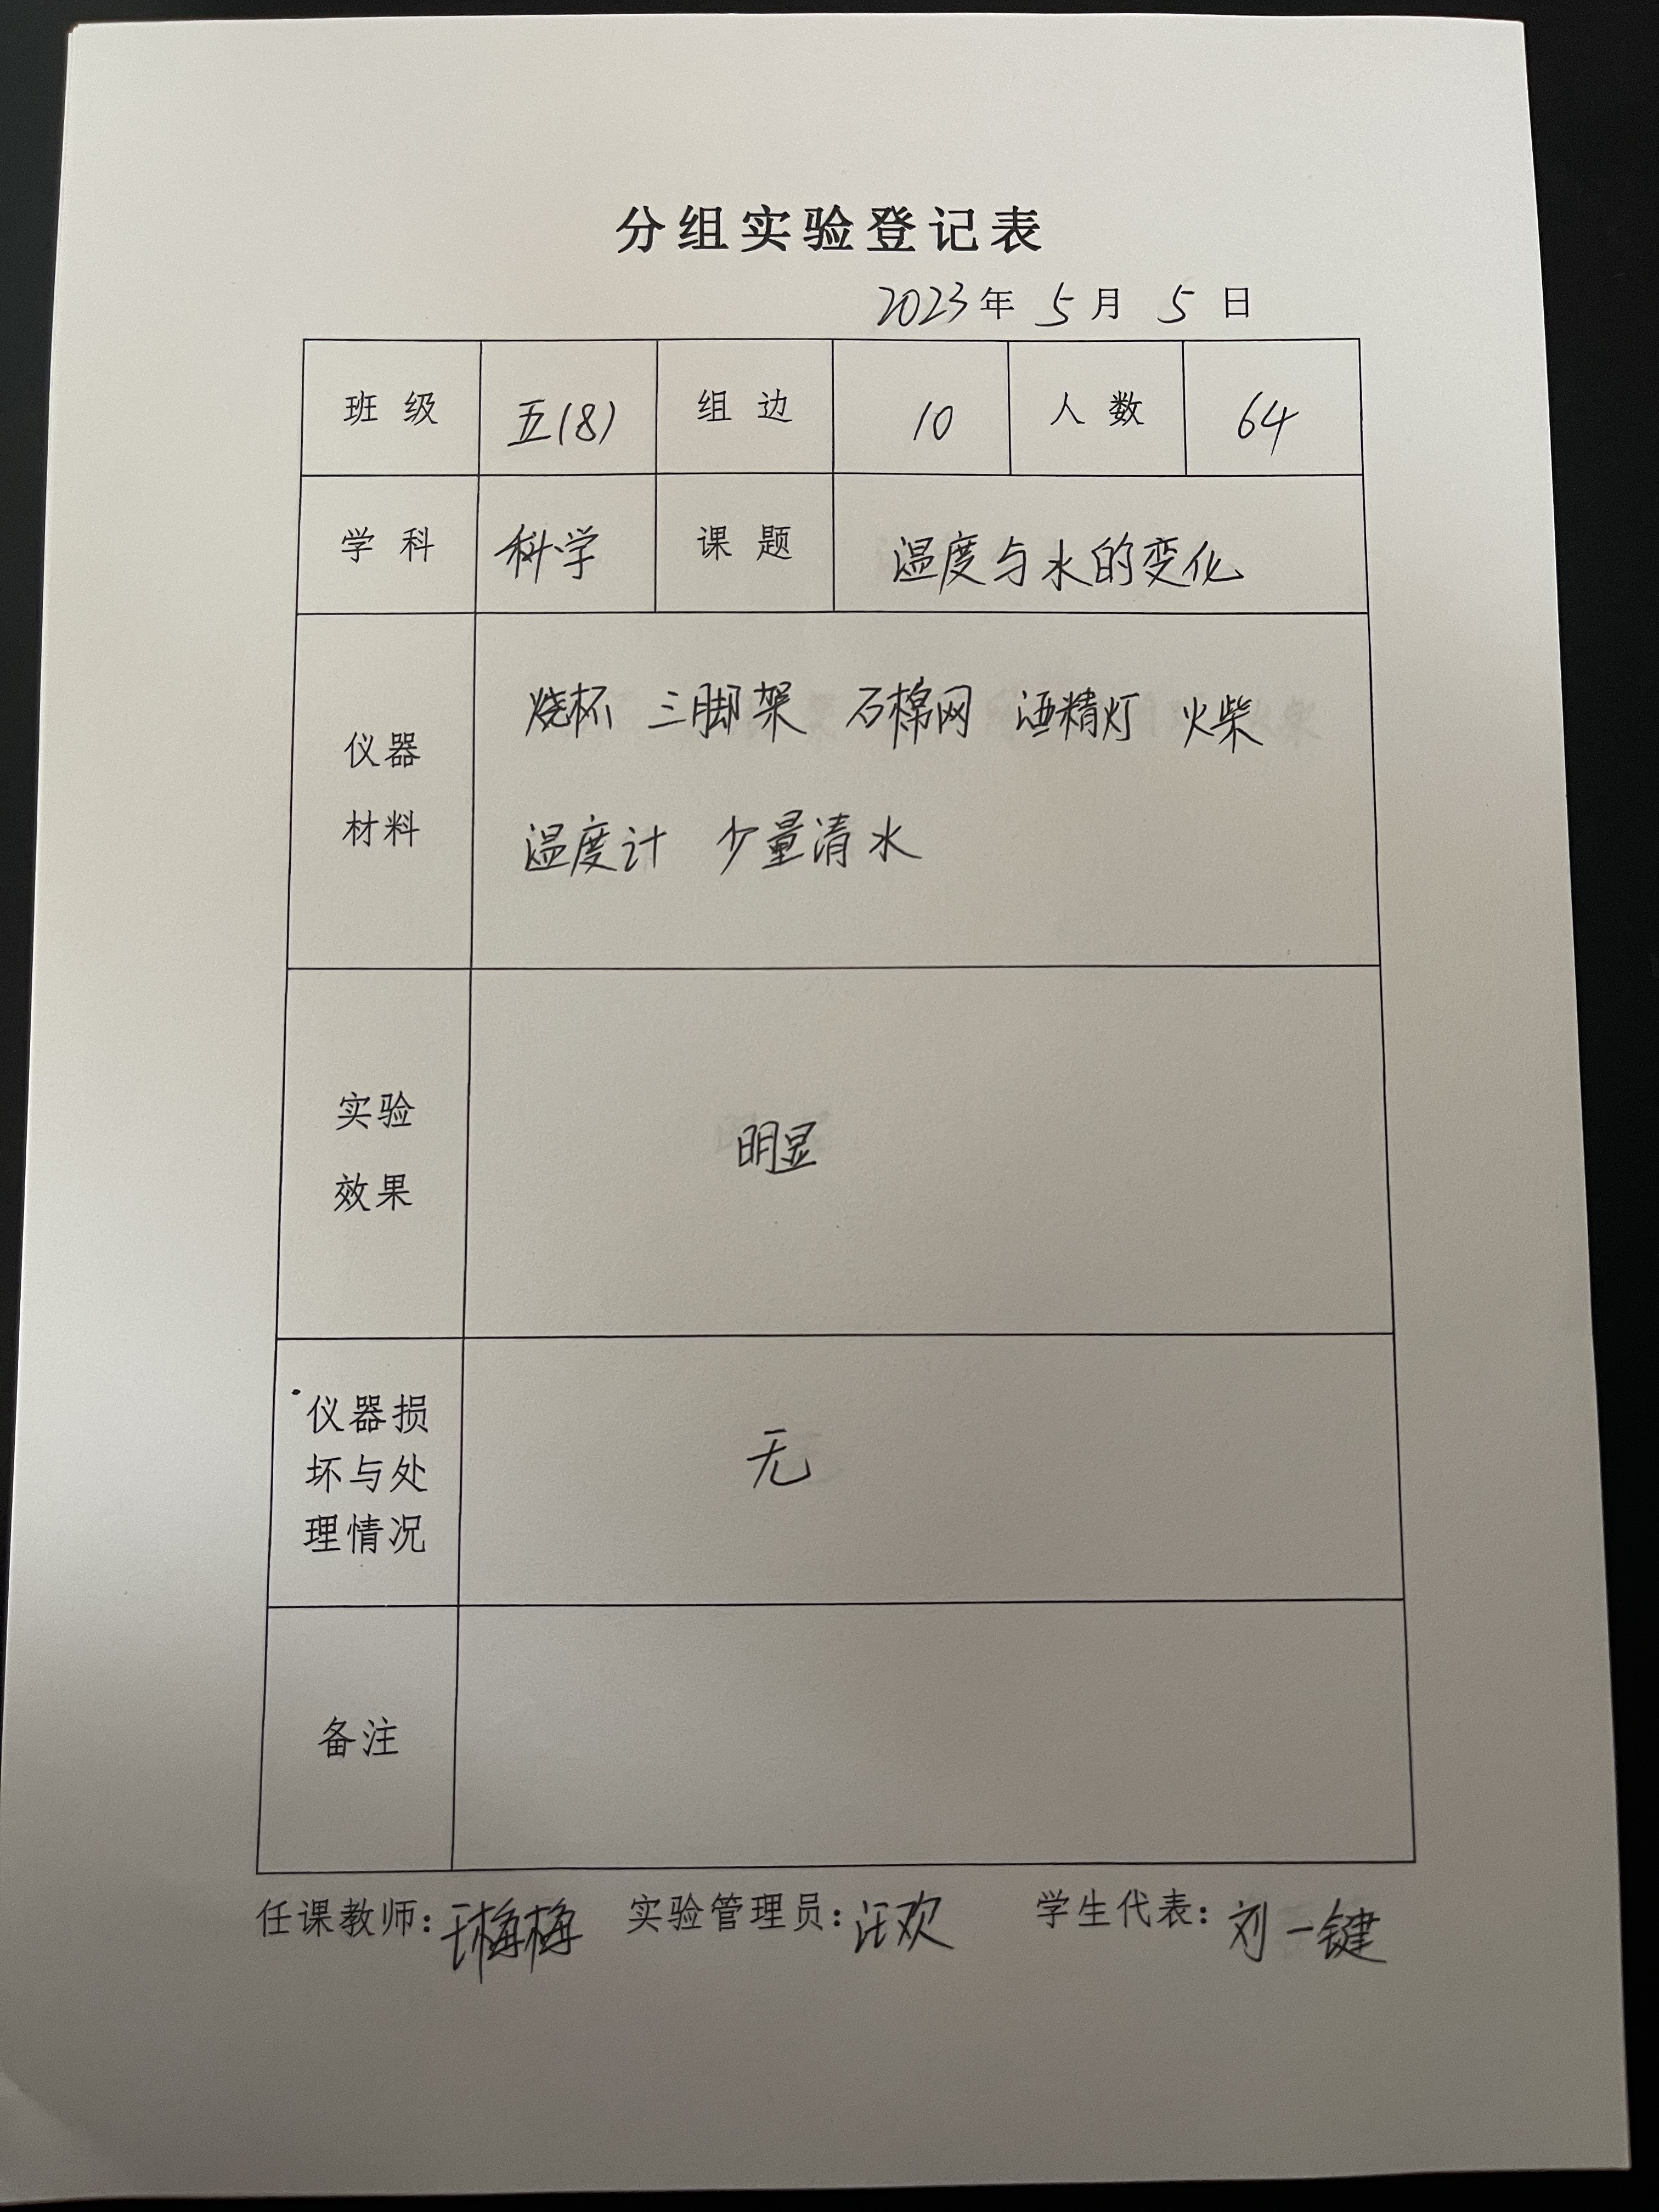 分组实验登记表
2023年 5月 5日
班级 五(8) 组边 10 人数 64
学科 科学 课题 温度与水的变化
仪器
材料
烧杯 三脚架 石棉网 酒精灯 火柴
温度计 少量清水
实验
效果
明显
仪器损
坏与处
理情况
无
备注
任课教师：王梅梅 实验管理员：汪欢 学生代表：刘一键